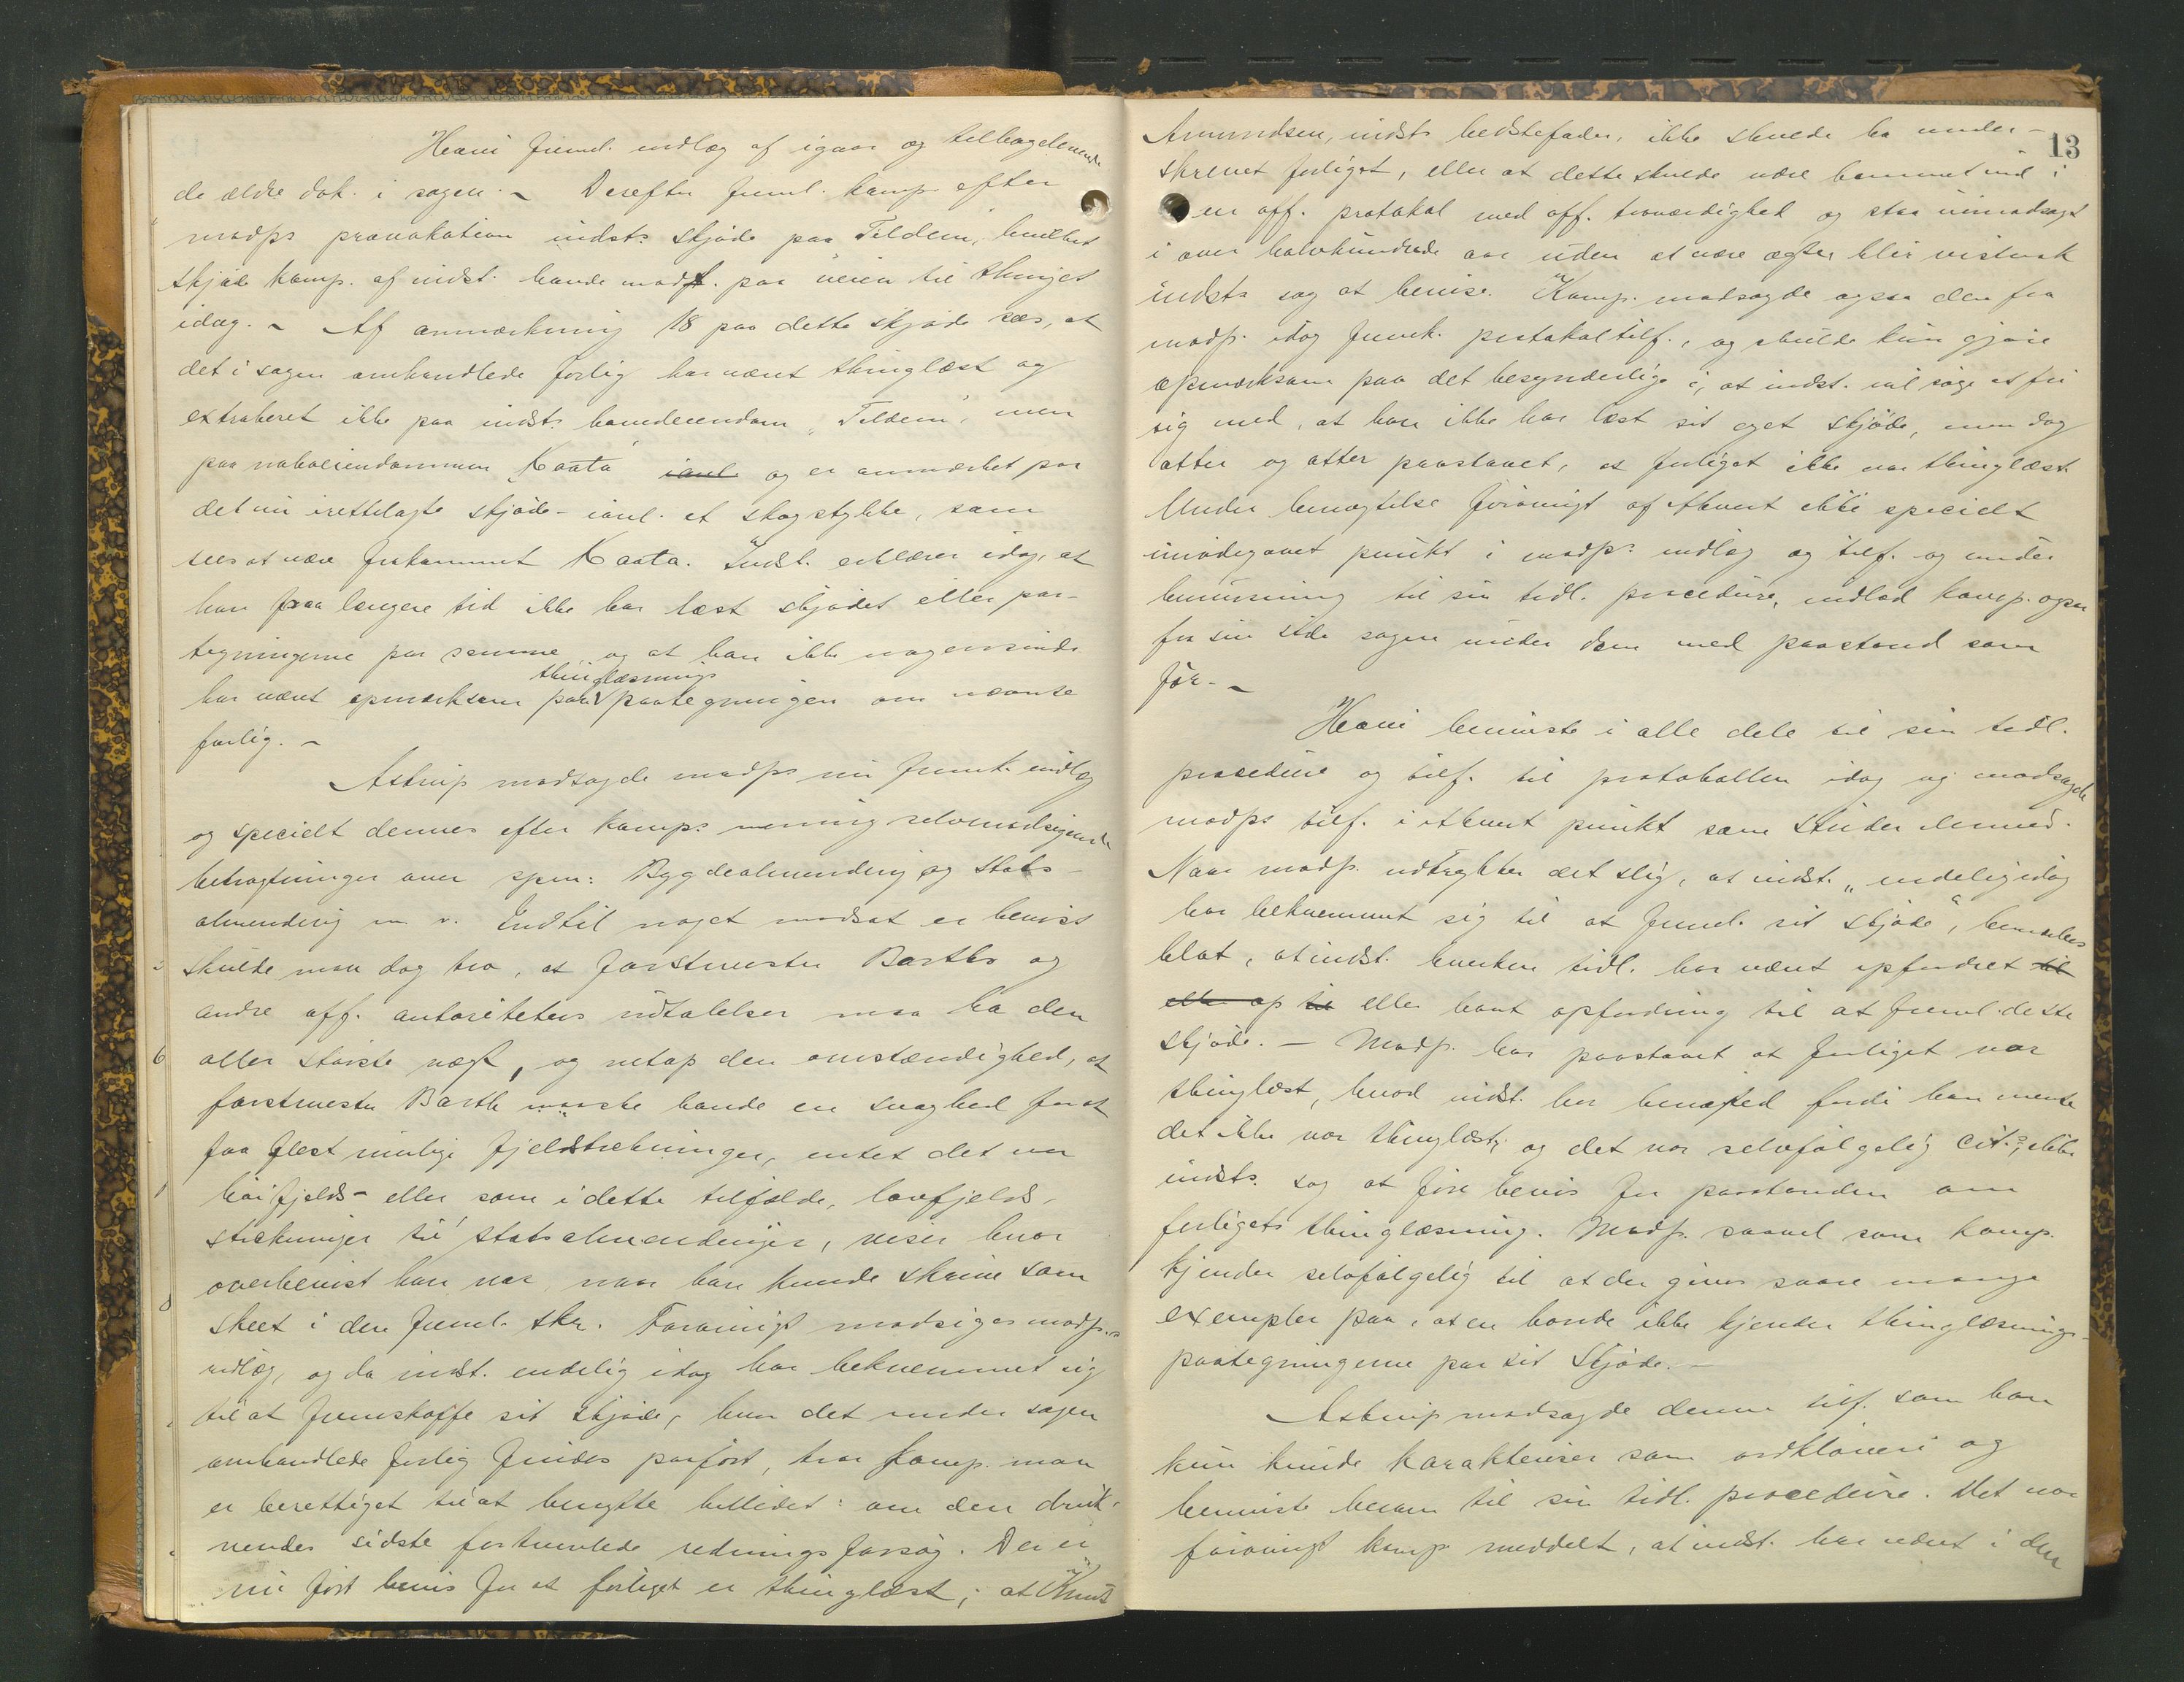 Heavi freml. indlæg af igaar og tilbageleverede
de ældre dok. i sagen. – Derefter freml. komp. efter
modps provokation indsts skjøde paa "Teldem", hvilket
skjøde komp. af indst. havde modt. paa veien til thinget
idag. – Af anmærkning 18 paa dette skjøde sees, at
det i sagen omhandlede forlig har været thinglæst og
extraheret ikke paa indsts havedeiendom "Teldem", men
paa naboeiendommen Kaata og er anmærket paa
det nu irettelagte skjøde – ianl. et skogstykke, som
sees at være frakommet Kaata. Indst. erklærer idag, at
han paa længere tid ikke har læst skjødet eller paa-
tegningerne paa samme, og at han ikke nogensinde
thinglæsnings
har været opmærksom paa paategningen om nævnte
forlig. –
Astrup modsagde modps nu freml. indlæg
og specielt dennes efter komps mening selvmodsigende
betragtninger over spm: Bygdealmending og Stats-
almending m v. Indtil noget modsat er bevist
skulde man dog tro, at forstmester Barths og
andre off. autoriteters udtalelser maa ha den
aller største vægt, og netop den omstændighed, at
forstmester Barth maaske havde en svaghed for at
faa flest mulige fjeldstrækninger, entet det var
høifjelds- eller som i dette tilfælde, lavfjelds-
strækninger til statsalmendinger, viser hvor
overbevist han var, naar han kunde skrive som
skeet i den freml. skr. Forøvrigt modsiges modp.s
indlæg, og da indst. endelig idag har bekvemmet sig
til at fremskaffe sit skjøde, hvor det under sagen
omhandlede forlig findes paaført, tror komp. man
er berettiget til at benytte billedet: om den druk-
nendes sidste fortvivlede redningsforsøg. Der er
nu ført bevis for at forliget er thinglæst; at Knut
13
Amundsen, indsts bedstefader, ikke skulde ha under-
skrevet forliget, eller at dette skulde være kommet ind i
en off. protokol med off. troværdighed og staa uimodsagt
i over halvhundrede aar uden at være ægte blir vistnok
indsts sag at bevise. Komp. modsagde ogsaa den fra
modp. idag fremk. protokoltilf., og skulde kun gjøre
opmærksom paa det besynderlige i, at indst. vil søge at fri
sig med, at han ikke har læst sit eget skjøde, men dog
atter og atter paastaaet, at forliget ikke var thinglæst.
Under benægtelse forøvrigt af ethvert ikke specielt
imødegaaet punkt i modps indlæg og tilf. og under
henvisning til sin tidl. procedure, indlod komp. ogsaa
fra sin side sagen under dom med paastand som
før. –
Heavi henviste i alle dele til sin tidl.
procedure og tilf. til protokollen idag og modsagde
modps tilf. i ethvert punkt som strider derimod.
Naar modp. udtrykker det slig, at indst. "endelig idag
har bekvemmet sig til at freml. sit skjøde", bemærkes
blot, at indst. hverken tidl. har været opfordret til
eller op til eller havt opfordring til at freml. dette
skjøde. – Modp. har paastaaet at forliget var
thinglæst, hvad indst. har benægted fordi han mente
det ikke var thinglæst; og det var selvfølgelig cit.s, ikke
indsts. sag at føre bevis for paastanden om
forligets thinglæsning. Modp. saavel som komp.
kjender selvfølgelig til at der gives saare mange
exempler paa, at en bonde ikke kjender thinglæsnings-
paategningerne paa sit skjøde. –
Astrup modsagde denne tilf. som han
kun kunde karakterisere som ordkløveri og
henviste herom til sin tidl. procedure. Det var
forøvrigt komp. meddelt, at indst. har været i den